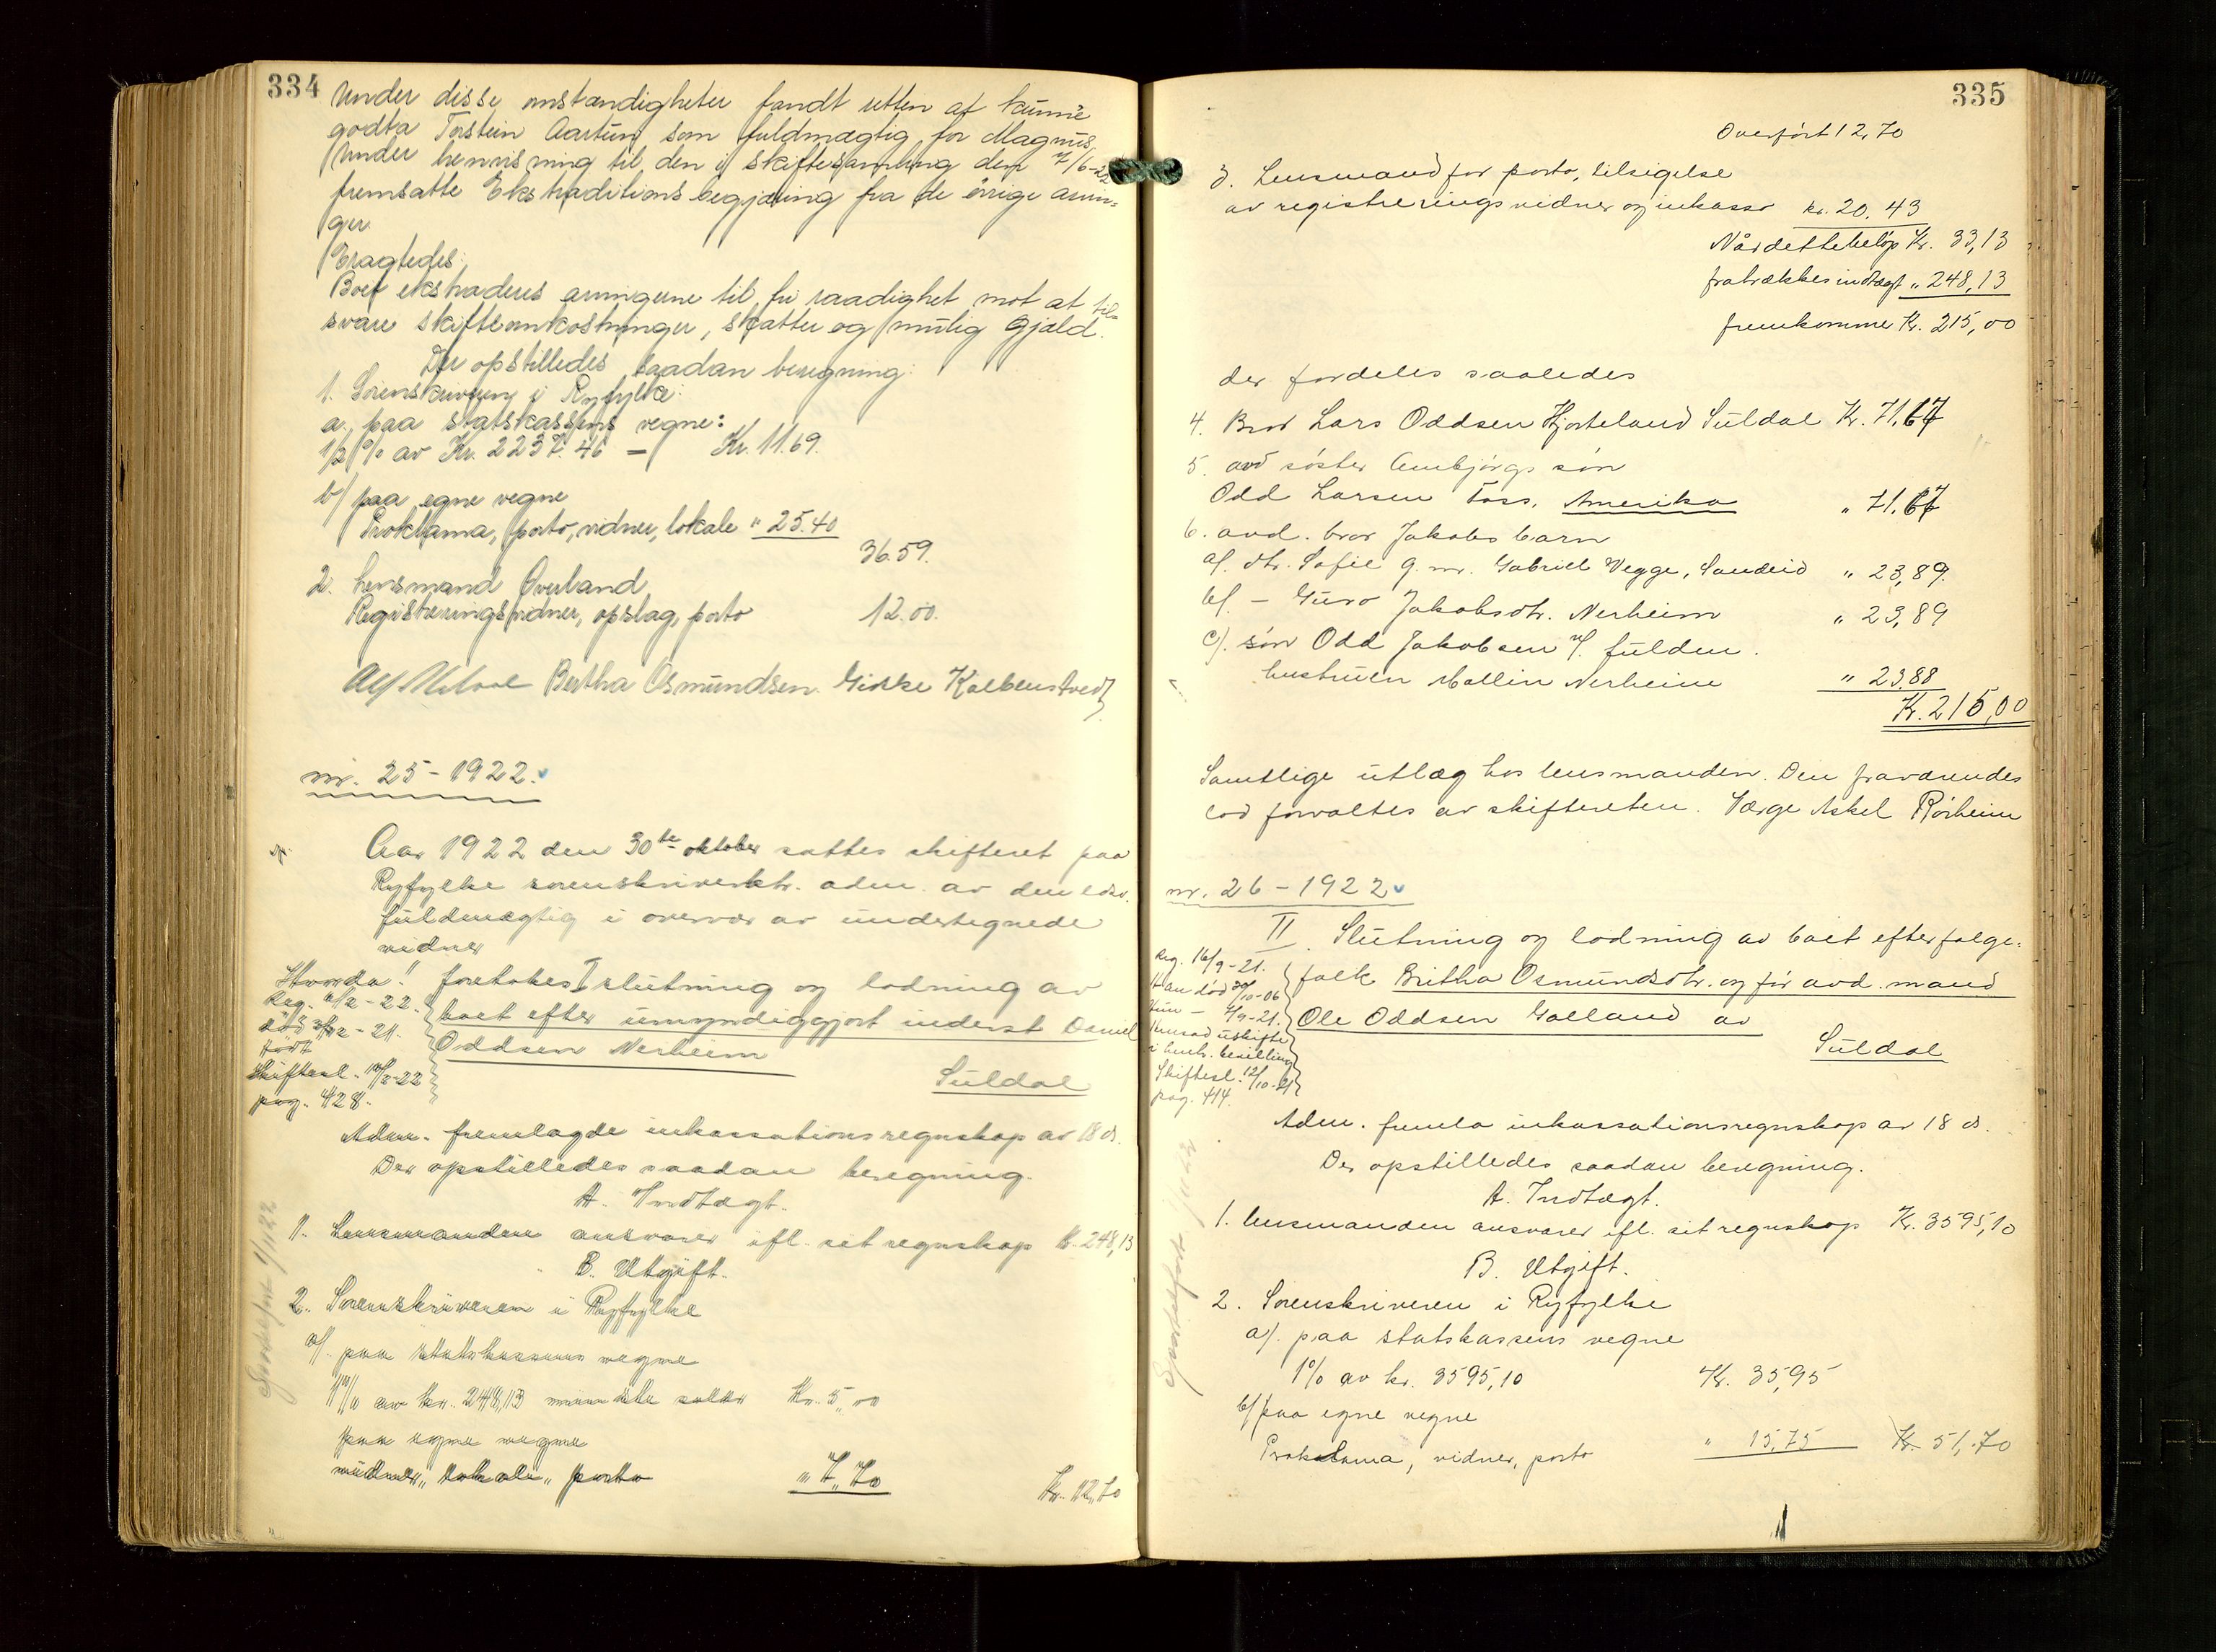 334
Under disse omstændigheter fandt retten at kunne
godta Torstein Aartun som fuldmægtig for Magnus.
Under henvisning til den i skiftesamling den 7/6-22
fremsatte Ekstraditions begjæring fra de övrige arvin-
ger.
Eragtedes:
Boet ekstraderes arvingerne til fri raadighet mot at til-
svare skifteomkostninger, skatter og mulig Gjæld.
Der opstilledes saadan beregning:
1. Sorenskriveren i Ryfylke:
a. paa statskassens vegne:
1/2 % av Kr. 2237.46 = Kr. 11.69.
b/ paa egne vegne
Proklama, porto, vidner, lokale " 25.40
36.59.
2. Lensmand Överland
Registreringsvidner, opslag, porto 12.00.
Bertha Osmundsen. Gikke Kolbenstvedt
nr. 25 - 1922.
Aar 1922 den 30te oktober sattes skifteret paa
Ryfylke sorenskriverktr. adm. av den edsv.
fuldmægtig i overvær av undertegnede
vidner
Hvorda! foretokes I slutning og lodning av
Reg. 6/2-22.
boet efter umyndiggjort inderst Daniel
död 2/12-21.
födt
Oddsen Nerheim
Skiftesl. 10/2-22
Suldal
pag. 428.
Adm. fremlagde inkassationsregnskap av 18 ds.
Der opstilledes saadan beregning.
A. Indtægt.
1. Lensmanden ansvarer ifl. sit regnskap Kr. 248,13
B. Utgift.
2. Sorenskriveren i Ryfylke
a/. paa statskassens vegne
1% av kr. 248,13 mindste sats Kr. 5,00
paa egne vegne
vidner, lokale, porto " 7,70 Kr. 12,70
335
Overfört 12,70
3. Lensmand for porto, tilsigelse
av registreringsvidner og inkasso kr. 20,43
Når dette belöp Kr. 33,13
fratrækkes indtægt " 248,13
fremkommer Kr. 215,00
der fordeles saaledes
4. Bror Lars Oddsen Hjorteland Suldal Kr. 71,67
5. avd söster Ambjörgs sön
Odd Larsen Foss, Amerika " 71.67
6. avd. bror Jakobs barn
a/. dtr. Sofie g. m. Gabriel Vegge, Sandeid " 23,89.
b/. - Guro Jakobsdtr. Nerheim " 23,89
c/. sön Odd Jakobsen v/ fuldm.
hustruen Mallin Nerheim " 23.88
Kr. 215,00
Samtlige utlæg hos lensmanden. Den fraværendes
lod forvaltes av skifteretten. Værge Askel Rörheim
nr. 26 - 1922
II. Slutning og lodning av boet efter følge-
Reg. 16/9-21.
folk Britha Osmundsdtr. og för avd. mand
Han död 30/10-06
Hun - 4/9-21.
Ole Oddsen Galland av
Hensad uskifte
i henh. bevilling
Suldal
Skiftesl. 12/10-21
pag. 414.
Adm. fremla inkassationsregnskap av 18 ds.
Der opstilledes saadan beregning.
A. Indtægt.
1. Lensmanden ansvarer ifl. sit regnskap Kr. 3595,10
B. Utgift.
2. Sorenskriveren i Ryfylke
a/. paa statskassens vegne
1% av kr. 3595,10 Kr. 35,95
b/ paa egne vegne
Proklama, vidner, porto " 15,75 Kr. 51,70